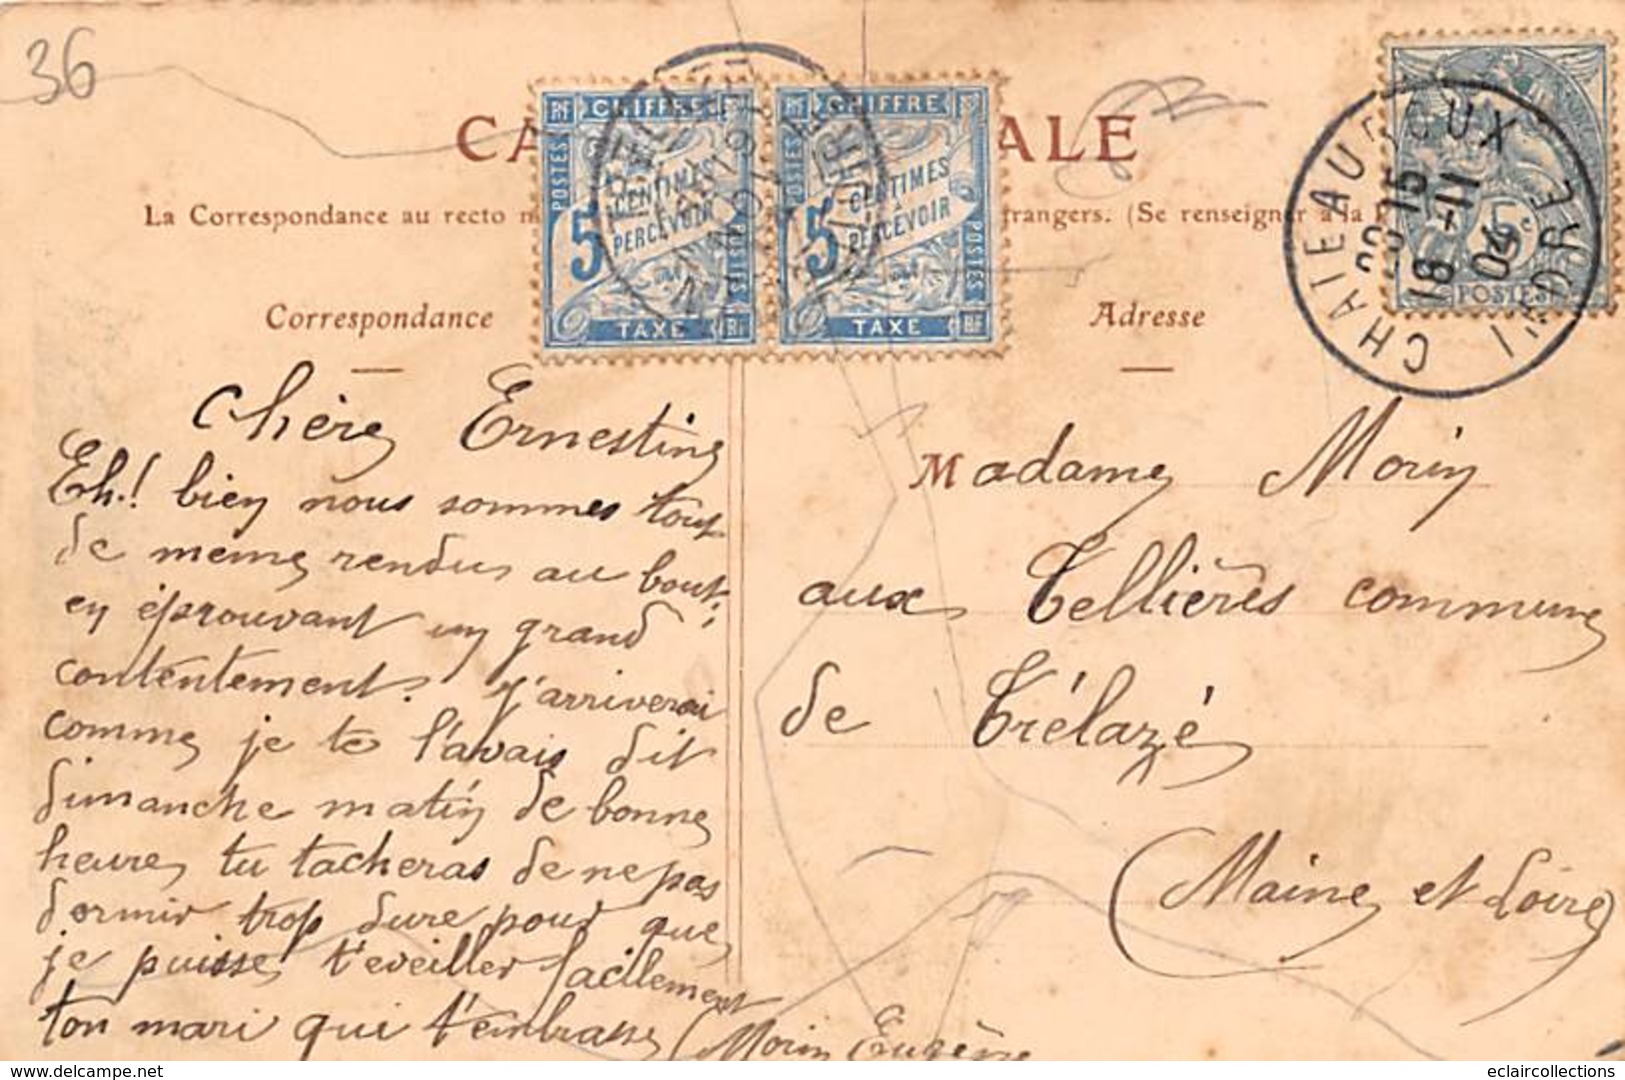 36
CA ALE
La Correspondance au recto trangers. (Se renseigner à la
RF CHIFFRE
POSTES
5 CENTIMES À PERCEVOIR
POSTES
TAXE RF
RF CHIFFRE
5 CENTIMES À PERCEVOIR
POSTES
TAXE RF
5c
POSTES
CHATEAUROUX
INDRE
15
18 -11
04
Correspondance
Adresse
Chère Ernestine
Eh! bien nous sommes tout
de même rendus au bout,
en éprouvant un grand
contentement. J'arriverai
comme je te l'avais dit
dimanche matin de bonne
heure, tu tacheras de ne pas
dormir trop dure pour que
je puisse t'eveiller facilement
ton mari qui t'embrasse
Morin Eugène
Madame Morin
aux Tellières commune
de Trélazé
(Maine et Loire)
eclaircollections